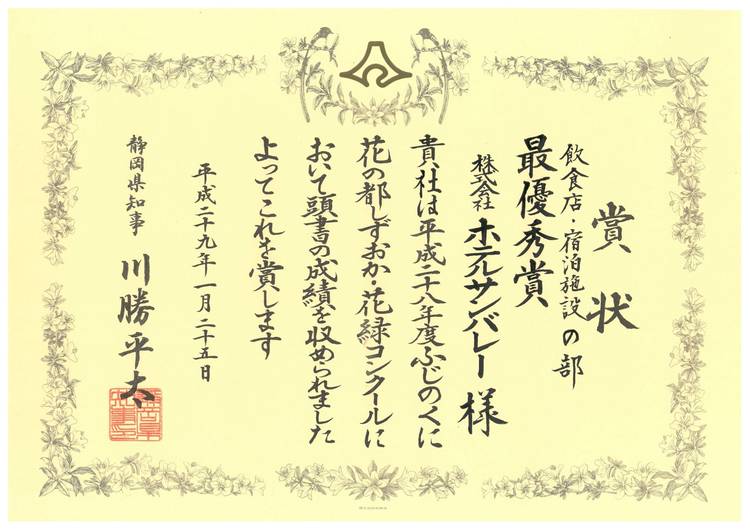 賞状
飲食店・宿泊施設の部
最優秀賞
株式会社 ホテルサンバレー 様
貴社は平成二十八年度ふじのくに
花の都しずおか・花緑コンクールに
おいて頭書の成績を収められました
よってこれを賞します
平成二十九年一月二十五日
静岡県知事 川勝平太